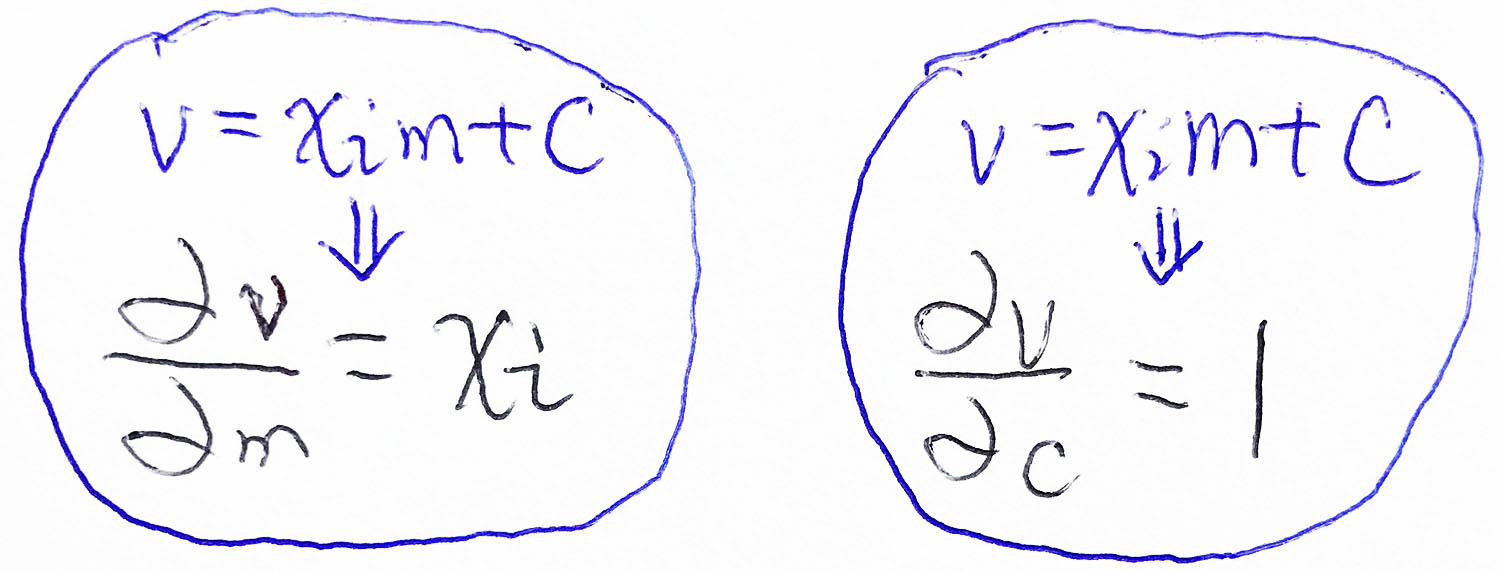 v = xᵢm + c
⇓
∂v/∂m = xᵢ
v = xᵢm + c
⇓
∂v/∂c = 1